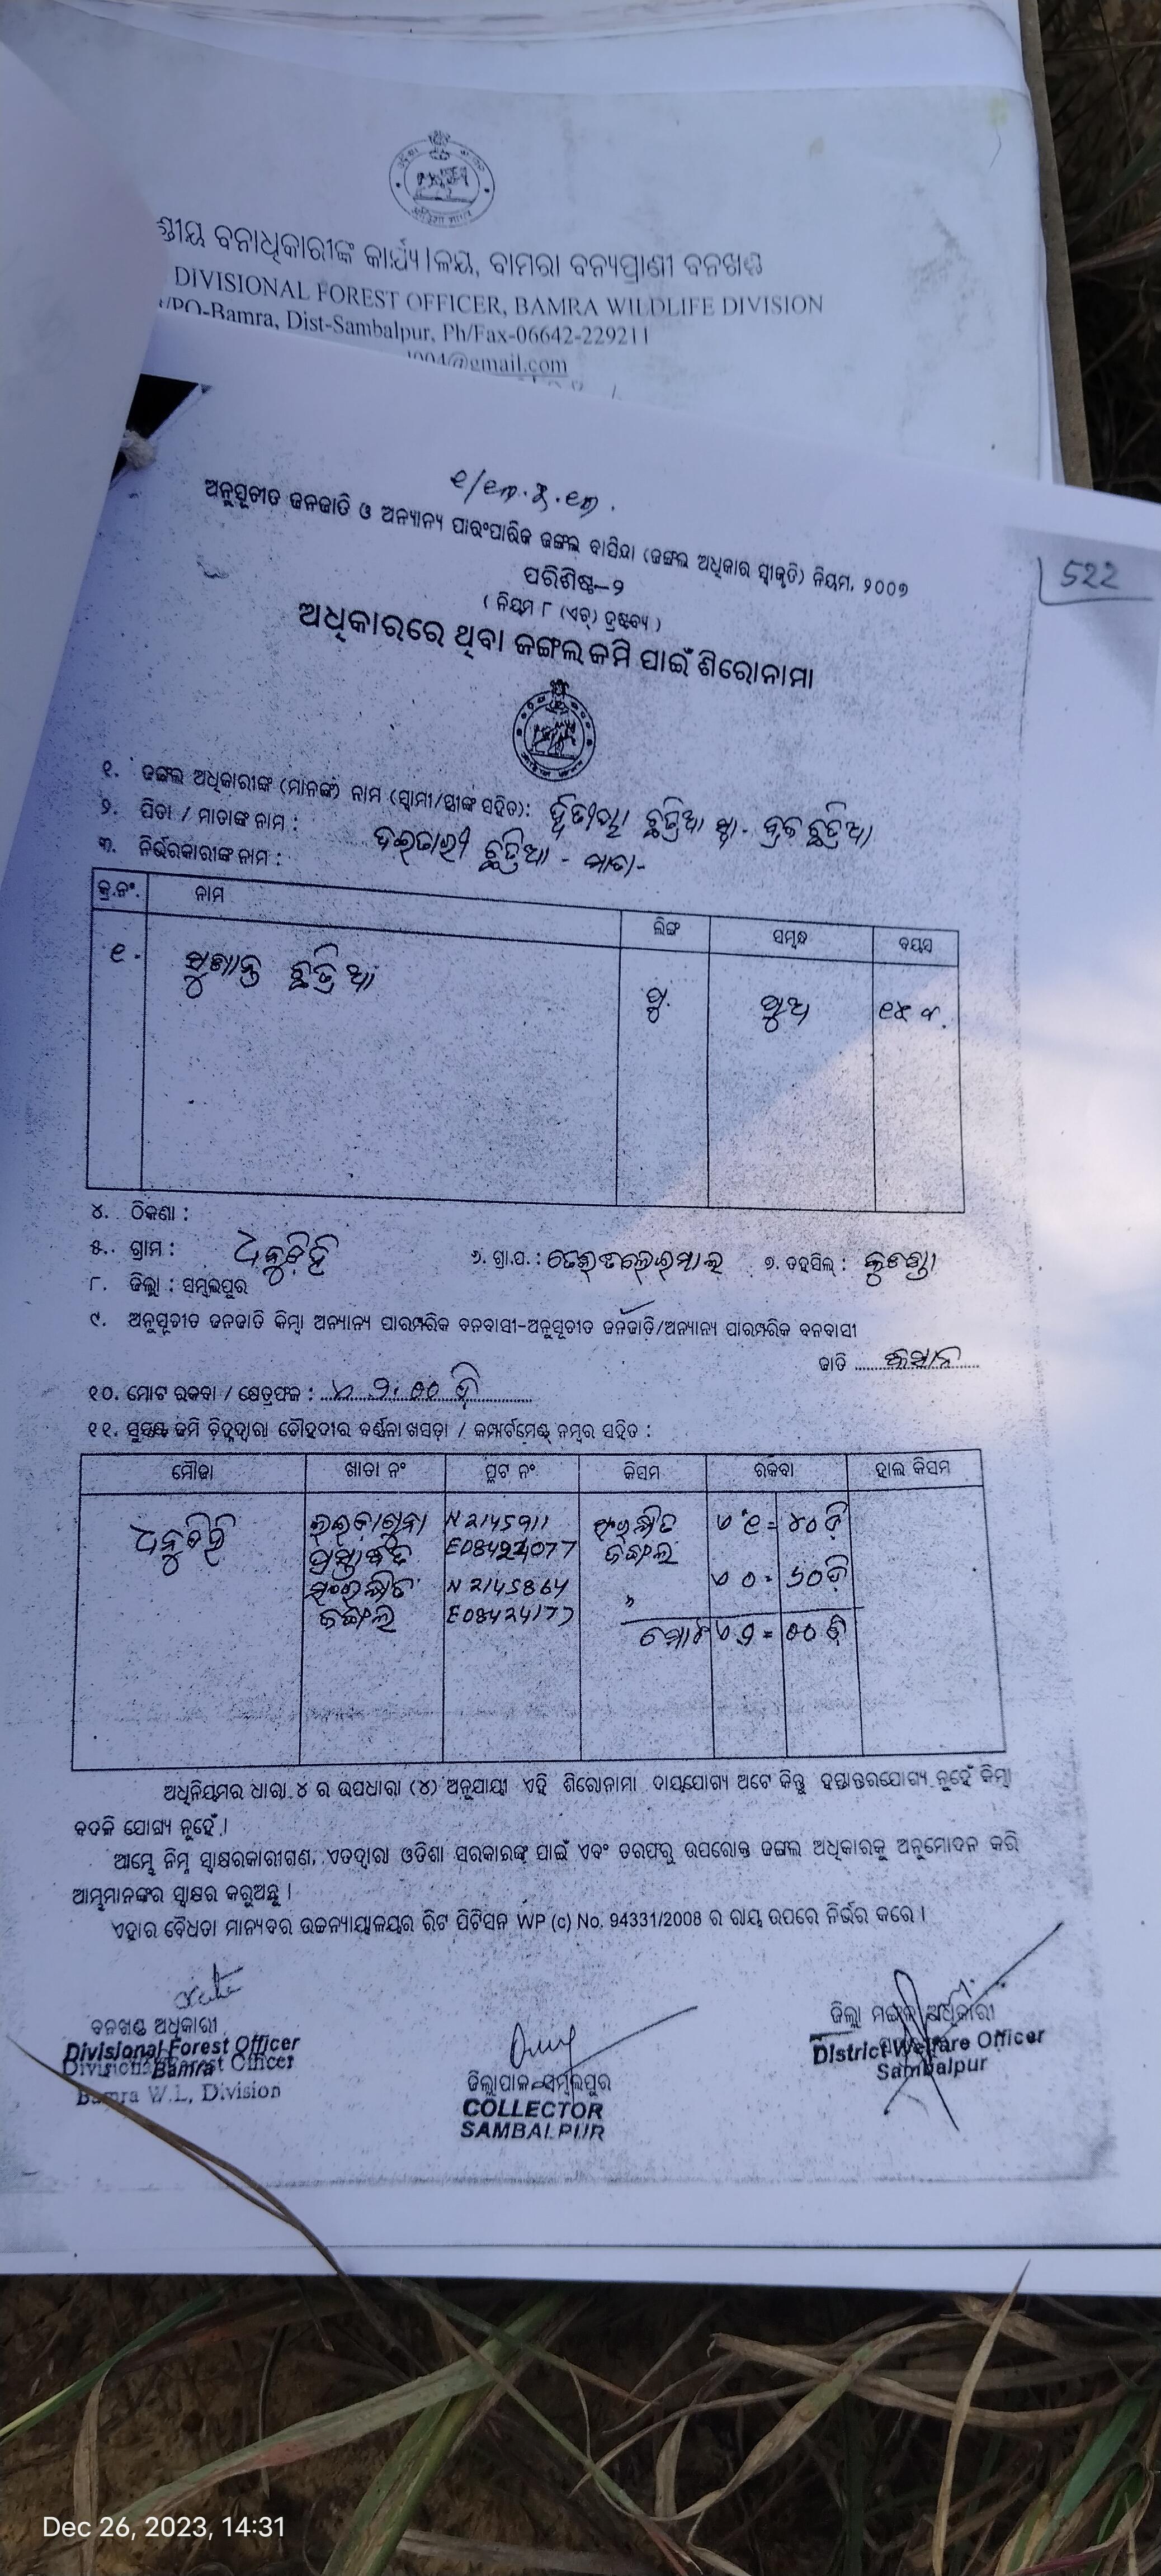 ବନାଧିକାରୀଙ୍କ କାର୍ଯ୍ୟାଳୟ, ବାମରା ବନ୍ୟପ୍ରାଣୀ ବନଖଣ୍ଡ
DIVISIONAL FOREST OFFICER, BAMRA WILDLIFE DIVISION
/PO-Bamra, Dist-Sambalpur, Ph/Fax-06642-229211
@gmail.com
522
ଅନୁସୂଚୀତ ଜନଜାତି ଓ ଅନ୍ୟାନ୍ୟ ପାରଂପାରିକ ଜଙ୍ଗଲ ବାସିନ୍ଦା (ଜଙ୍ଗଲ ଅଧିକାର ସ୍ୱୀକୃତି) ନିୟମ, ୨୦୦୭
ପରିଶିଷ୍ଟ-୨
( ନିୟମ ୮ (ଏଚ୍) ଦ୍ରଷ୍ଟବ୍ୟ )
ଅଧିକାରରେ ଥିବା ଜଙ୍ଗଲ ଜମି ପାଇଁ ଶିରୋନାମା
୧. ଜଙ୍ଗଲ ଅଧିକାରୀଙ୍କ (ମାନଙ୍କ) ନାମ (ସ୍ୱାମୀ/ସ୍ତ୍ରୀଙ୍କ ସହିତ) : ଛତ୍ରିଆ ସ୍ୱା- ବ୍ରଜ ଛତ୍ରିଆ
୨. ପିତା / ମାତାଙ୍କ ନାମ : ଦଇତାରୀ ଛତ୍ରିଆ - ମାତା-
୩. ନିର୍ଭରକାରୀଙ୍କ ନାମ :
କ୍ର.ନଂ. ନାମ ଲିଙ୍ଗ ସମ୍ବନ୍ଧ ବୟସ
୧. ସୁଶାନ୍ତ ଛତ୍ରିଆ ପୁ. ପୁଅ ୧୪ ବ.
୪. ଠିକଣା :
୫. ଗ୍ରାମ : ଧନୁଡିହି ୬. ଗ୍ରା.ପ. : ୭. ତହସିଲ୍ : କୁଚିଣ୍ଡା
୮. ଜିଲ୍ଲା : ସମ୍ବଲପୁର
୯. ଅନୁସୂଚୀତ ଜନଜାତି କିମ୍ବା ଅନ୍ୟାନ୍ୟ ପାରମ୍ପରିକ ବନବାସୀ-ଅନୁସୂଚୀତ ଜନଜାତି/ଅନ୍ୟାନ୍ୟ ପାରମ୍ପରିକ ବନବାସୀ
ଜାତି କିସାନ
୧୦. ମୋଟ ରକବା / କ୍ଷେତ୍ରଫଳ : ଏ ୨.୦୦ ଡି
୧୧. ସୁସ୍ପଷ୍ଟ ଜମି ଚିହ୍ନଦ୍ୱାରା ଚୌହଦୀର ବର୍ଣ୍ଣନା ଖସଡ଼ା / କମ୍ପାର୍ଟମେଣ୍ଟ୍ ନମ୍ବର ସହିତ :
ମୌଜା ଖାତା ନଂ ପ୍ଲଟ ନଂ କିସମ ରକବା ହାଲ କିସମ
ଧନୁଡିହି N 2145911 ସଂରକ୍ଷିତ ଏ ୧ = ୪୦ ଡି
ପ୍ରସ୍ତାବିତ E08424077 ଜଙ୍ଗଲ
ସଂରକ୍ଷିତ N 2145864 ଏ ୦ = ୬୦ ଡି
ଜଙ୍ଗଲ E08424177
ମୋଟ ଏ ୨ = ୦୦ ଡି
ଅଧିନିୟମର ଧାରା ୪ ର ଉପଧାରା (୪) ଅନୁଯାୟୀ ଏହି ଶିରୋନାମା ଦାୟଯୋଗ୍ୟ ଅଟେ କିନ୍ତୁ ହସ୍ତାନ୍ତରଯୋଗ୍ୟ ନୁହେଁ କିମ୍ବା
ବଦଳି ଯୋଗ୍ୟ ନୁହେଁ ।
ଆମ୍ଭେ ନିମ୍ନ ସ୍ୱାକ୍ଷରକାରୀଗଣ, ଏତଦ୍ୱାରା ଓଡିଶା ସରକାରଙ୍କ ପାଇଁ ଏବଂ ତରଫରୁ ଉପରୋକ୍ତ ଜଙ୍ଗଲ ଅଧିକାରକୁ ଅନୁମୋଦନ କରି
ଆମ୍ଭମାନଙ୍କର ସ୍ୱାକ୍ଷର କରୁଅଛୁ ।
ଏହାର ବୈଧତା ମାନ୍ୟବର ଉଚ୍ଚନ୍ୟାୟାଳୟର ରିଟ ପିଟିସନ WP (c) No. 94331/2008 ର ରାୟ ଉପରେ ନିର୍ଭର କରେ ।
ବନଖଣ୍ଡ ଅଧିକାରୀ
Divisional Forest Officer
Bamra
Divisional Forest Officer
Bamra W.L. Division
ଜିଲ୍ଲାପାଳ ସମ୍ବଲପୁର
COLLECTOR
SAMBALPUR
ଜିଲ୍ଲା ମଙ୍ଗଳ ଅଧିକାରୀ
District Welfare Officer
Sambalpur
Dec 26, 2023, 14:31